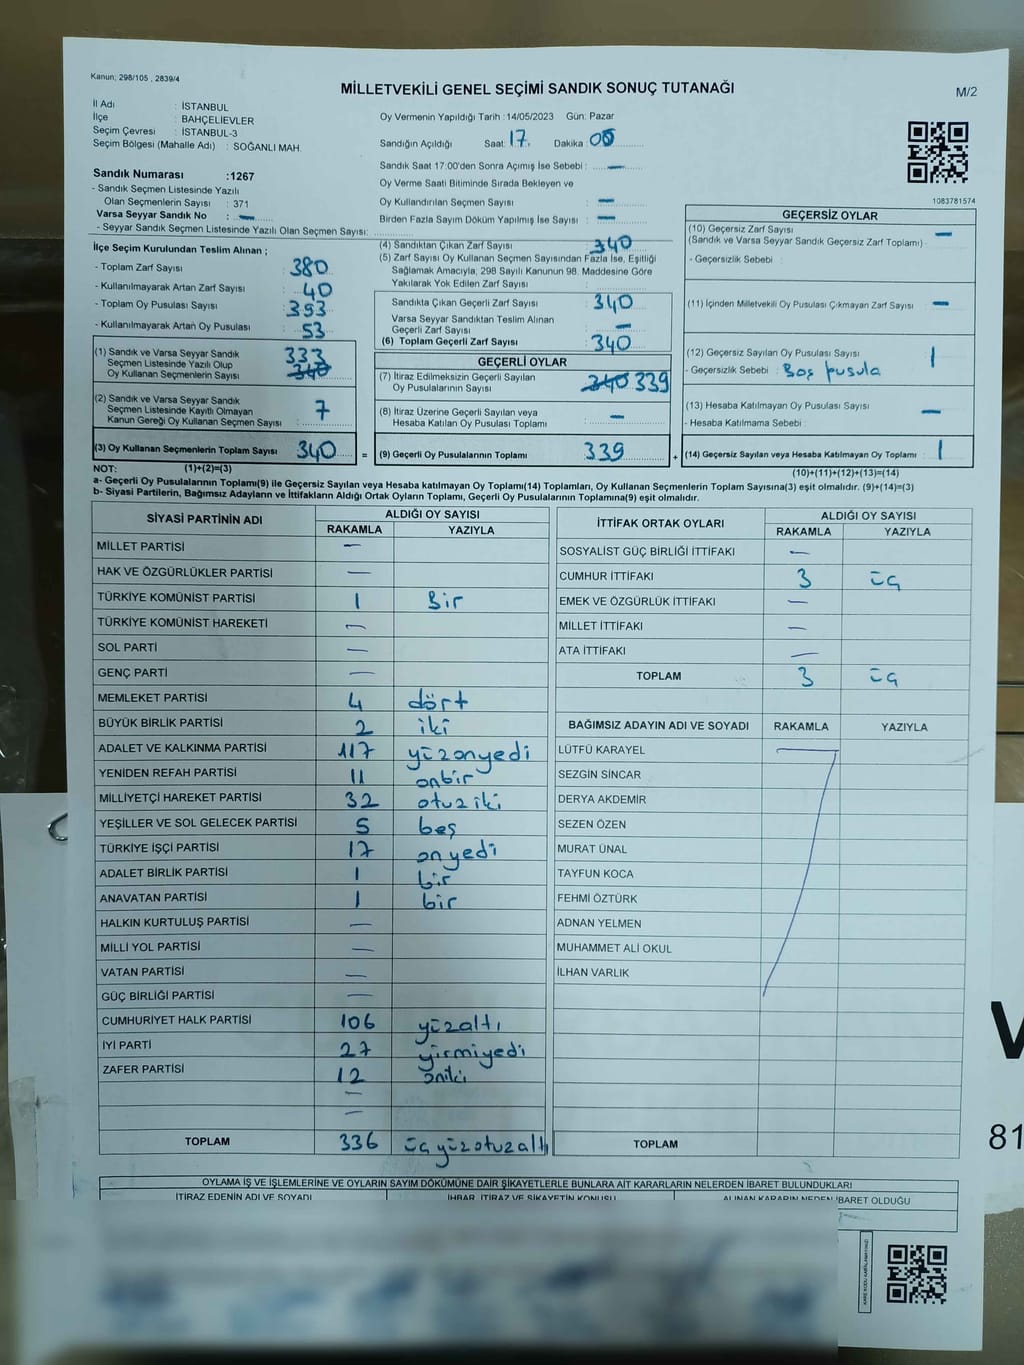 Kanun; 298/105 , 2839/4
MİLLETVEKİLİ GENEL SEÇİMİ SANDIK SONUÇ TUTANAĞI
M/2
İl Adı : İSTANBUL
İlçe : BAHÇELİEVLER
Seçim Çevresi : İSTANBUL-3
Seçim Bölgesi (Mahalle Adı) : SOĞANLI MAH.
Sandık Numarası :1267
- Sandık Seçmen Listesinde Yazılı
Olan Seçmenlerin Sayısı : 371
Varsa Seyyar Sandık No : —
- Seyyar Sandık Seçmen Listesinde Yazılı Olan Seçmen Sayısı:
Oy Vermenin Yapıldığı Tarih :14/05/2023 Gün: Pazar
Sandığın Açıldığı Saat: 17 Dakika : 00
Sandık Saat 17:00'den Sonra Açılmış İse Sebebi : —
Oy Verme Saati Bitiminde Sırada Bekleyen ve
Oy Kullandırılan Seçmen Sayısı : —
Birden Fazla Sayım Döküm Yapılmış İse Sayısı : —
1083781574
İlçe Seçim Kurulundan Teslim Alınan ;
- Toplam Zarf Sayısı : 380
- Kullanılmayarak Artan Zarf Sayısı : 40
- Toplam Oy Pusulası Sayısı : 393
- Kullanılmayarak Artan Oy Pusulası : 53
(1) Sandık ve Varsa Seyyar Sandık
Seçmen Listesinde Yazılı Olup
Oy Kullanan Seçmenlerin Sayısı : 333 340
(2) Sandık ve Varsa Seyyar Sandık
Seçmen Listesinde Kayıtlı Olmayan
Kanun Gereği Oy Kullanan Seçmen Sayısı : 7
(3) Oy Kullanan Seçmenlerin Toplam Sayısı : 340
(4) Sandıktan Çıkan Zarf Sayısı : 340
(5) Zarf Sayısı Oy Kullanan Seçmen Sayısından Fazla İse, Eşitliği
Sağlamak Amacıyla, 298 Sayılı Kanunun 98. Maddesine Göre
Yakılarak Yok Edilen Zarf Sayısı :
Sandıkta Çıkan Geçerli Zarf Sayısı : 340
Varsa Seyyar Sandıktan Teslim Alınan
Geçerli Zarf Sayısı : —
(6) Toplam Geçerli Zarf Sayısı : 340
GEÇERLİ OYLAR
(7) İtiraz Edilmeksizin Geçerli Sayılan
Oy Pusulalarının Sayısı : 340 339
(8) İtiraz Üzerine Geçerli Sayılan veya
Hesaba Katılan Oy Pusulası Toplamı : —
= (9) Geçerli Oy Pusulalarının Toplamı : 339
GEÇERSİZ OYLAR
(10) Geçersiz Zarf Sayısı : —
(Sandık ve Varsa Seyyar Sandık Geçersiz Zarf Toplamı)
- Geçersizlik Sebebi :
(11) İçinden Milletvekili Oy Pusulası Çıkmayan Zarf Sayısı : —
(12) Geçersiz Sayılan Oy Pusulası Sayısı : 1
- Geçersizlik Sebebi : Boş pusula
(13) Hesaba Katılmayan Oy Pusulası Sayısı : —
- Hesaba Katılmama Sebebi :
+ (14) Geçersiz Sayılan veya Hesaba Katılmayan Oy Toplamı : 1
NOT: (1)+(2)=(3)
(10)+(11)+(12)+(13)=(14)
a- Geçerli Oy Pusulalarının Toplamı(9) ile Geçersiz Sayılan veya Hesaba katılmayan Oy Toplamı(14) Toplamları, Oy Kullanan Seçmenlerin Toplam Sayısına(3) eşit olmalıdır. (9)+(14)=(3)
b- Siyasi Partilerin, Bağımsız Adayların ve İttifakların Aldığı Ortak Oyların Toplamı, Geçerli Oy Pusulalarının Toplamına(9) eşit olmalıdır.
SİYASİ PARTİNİN ADI ALDIĞI OY SAYISI
RAKAMLA YAZIYLA
MİLLET PARTİSİ —
HAK VE ÖZGÜRLÜKLER PARTİSİ —
TÜRKİYE KOMÜNİST PARTİSİ 1 Bir
TÜRKİYE KOMÜNİST HAREKETİ —
SOL PARTİ —
GENÇ PARTİ —
MEMLEKET PARTİSİ 4 dört
BÜYÜK BİRLİK PARTİSİ 2 iki
ADALET VE KALKINMA PARTİSİ 117 yüzonyedi
YENİDEN REFAH PARTİSİ 11 onbir
MİLLİYETÇİ HAREKET PARTİSİ 32 otuziki
YEŞİLLER VE SOL GELECEK PARTİSİ 5 beş
TÜRKİYE İŞÇİ PARTİSİ 17 onyedi
ADALET BİRLİK PARTİSİ 1 bir
ANAVATAN PARTİSİ 1 bir
HALKIN KURTULUŞ PARTİSİ —
MİLLİ YOL PARTİSİ —
VATAN PARTİSİ —
GÜÇ BİRLİĞİ PARTİSİ —
CUMHURİYET HALK PARTİSİ 106 yüzaltı
İYİ PARTİ 27 yirmiyedi
ZAFER PARTİSİ 12 oniki
—
—
TOPLAM 336 üçyüzotuzaltı
İTTİFAK ORTAK OYLARI ALDIĞI OY SAYISI
RAKAMLA YAZIYLA
SOSYALİST GÜÇ BİRLİĞİ İTTİFAKI —
CUMHUR İTTİFAKI 3 üç
EMEK VE ÖZGÜRLÜK İTTİFAKI —
MİLLET İTTİFAKI —
ATA İTTİFAKI —
TOPLAM 3 üç
BAĞIMSIZ ADAYIN ADI VE SOYADI RAKAMLA YAZIYLA
LÜTFÜ KARAYEL
SEZGİN SİNCAR
DERYA AKDEMİR
SEZEN ÖZEN
MURAT ÜNAL
TAYFUN KOCA
FEHMİ ÖZTÜRK
ADNAN YELMEN
MUHAMMET ALİ OKUL
İLHAN VARLIK
TOPLAM
OYLAMA İŞ VE İŞLEMLERİNE VE OYLARIN SAYIM DÖKÜMÜNE DAİR ŞİKAYETLERLE BUNLARA AİT KARARLARIN NELERDEN İBARET BULUNDUKLARI
İTİRAZ EDENİN ADI VE SOYADI İHBAR, İTİRAZ VE ŞİKAYETİN KONUSU ALINAN KARARIN NEDEN İBARET OLDUĞU
V
81